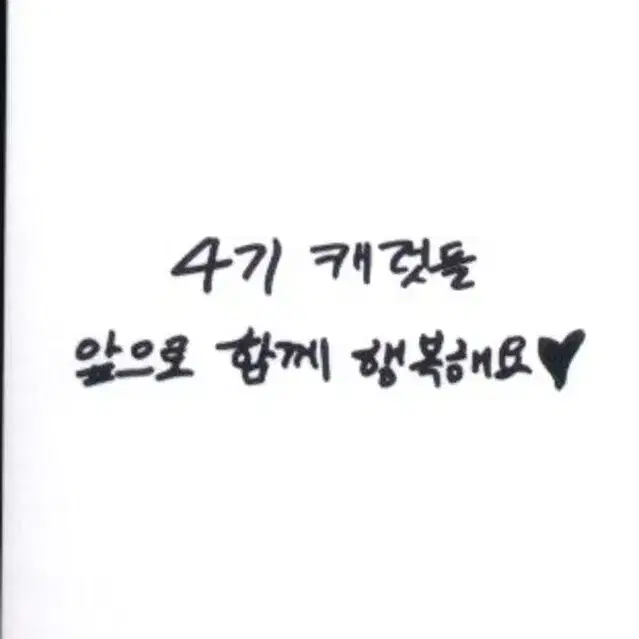 4기 캐럿들
앞으로 함께 행복해요♥